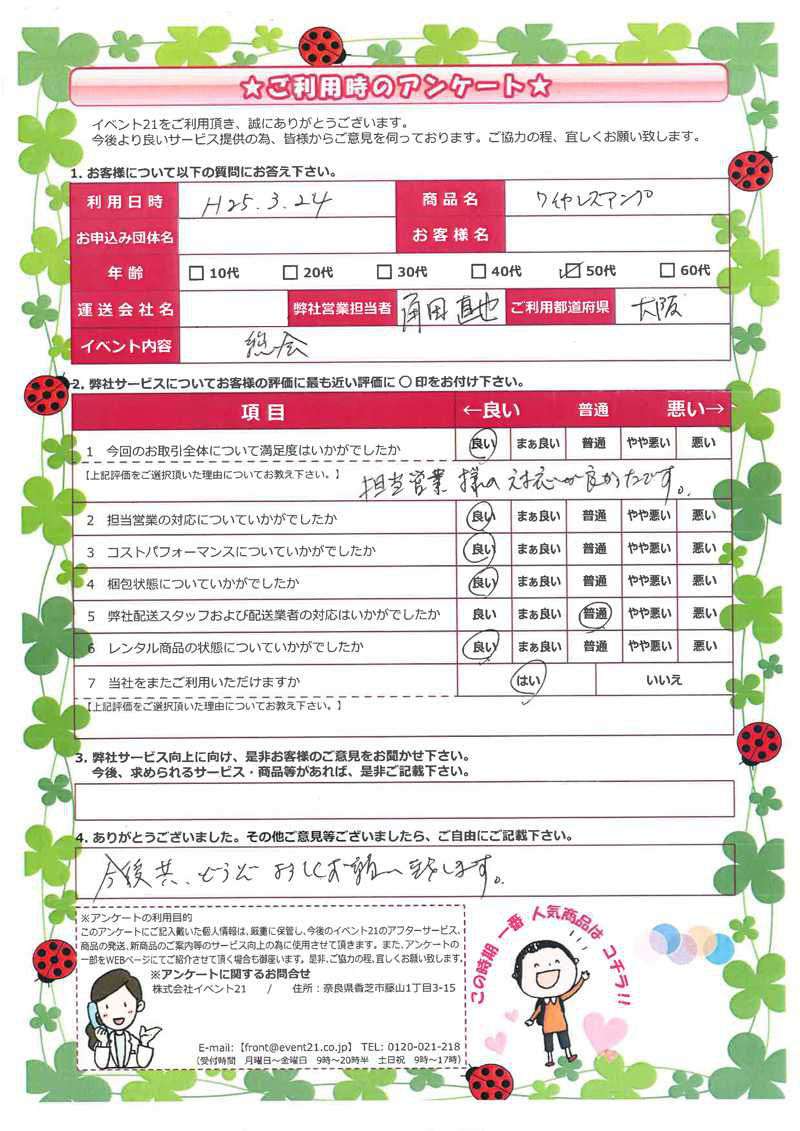 ★ご利用時のアンケート★
イベント21をご利用頂き、誠にありがとうございます。
今後より良いサービス提供の為、皆様からご意見を伺っております。ご協力の程、宜しくお願い致します。
1. お客様について以下の質問にお答え下さい。
利用日時 H25.3.24 商品名 ワイヤレスアンプ
お申込み団体名 お客様名
年齢 □10代 □20代 □30代 □40代 ☑50代 □60代
運送会社名 弊社営業担当者 角田直也 ご利用都道府県 大阪
イベント内容 総会
2. 弊社サービスについてお客様の評価に最も近い評価に 〇 印をお付け下さい。
項目 ←良い 普通 悪い→
1 今回のお取引全体について満足度はいかがでしたか 良い まぁ良い 普通 やや悪い 悪い
【上記評価をご選択頂いた理由についてお教え下さい。】
担当営業様の対応が良かったです。
2 担当営業の対応についていかがでしたか 良い まぁ良い 普通 やや悪い 悪い
3 コストパフォーマンスについていかがでしたか 良い まぁ良い 普通 やや悪い 悪い
4 梱包状態についていかがでしたか 良い まぁ良い 普通 やや悪い 悪い
5 弊社配送スタッフおよび配送業者の対応はいかがでしたか 良い まぁ良い 普通 やや悪い 悪い
6 レンタル商品の状態についていかがでしたか 良い まぁ良い 普通 やや悪い 悪い
7 当社をまたご利用いただけますか はい いいえ
【上記評価をご選択頂いた理由についてお教え下さい。】
3. 弊社サービス向上に向け、是非お客様のご意見をお聞かせ下さい。
今後、求められるサービス・商品等があれば、是非ご記載下さい。
4. ありがとうございました。その他ご意見等ございましたら、ご自由にご記載下さい。
今後共、どうぞよろしくお願い致します。
※アンケートの利用目的
このアンケートにご記入戴いた個人情報は、厳重に保管し、今後のイベント21のアフターサービス、
商品の発送、新商品のご案内等のサービス向上の為に使用させて頂きます。また、アンケートの
一部をWEBページにてご紹介させて頂く場合も御座います。是非、ご協力の程、宜しくお願い致します。
※アンケートに関するお問合せ
株式会社イベント21 / 住所：奈良県香芝市藤山1丁目3-15
E-mail:【front@event21.co.jp】 TEL: 0120-021-218
（受付時間 月曜日～金曜日 9時～20時半 土日祝 9時～17時）
この時期 一番 人気商品は コチラ!!